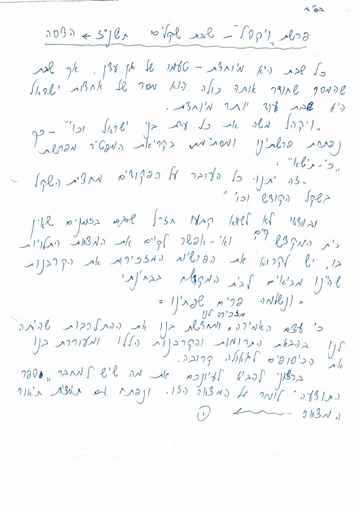 בס"ד
פרשת "ויקהל" - שבת שקלים תשנ"ז הדסה
כל שבת היא מיוחדת - טעמו של גן עדן. אך שבת
שהמסר שחודר אותה כולה הוא מסר של אחדות ישראל
היא שבת עוד יותר מיוחדת.
"ויקהל משה את כל עדת בני ישראל וכו'" - כך
נפתחת פרשתינו ומסתיימת בקריאת המפטיר מפרשת
"כי-תישא":
"זה יתנו כל העובר על הפקודים מחצית השקל
בשקל הקודש וכו'"
ובוודאי לא לשווא קבעו חז"ל שגם בזמנים שאין
בית המקדש קיים ואי-אפשר לקיים את המצוות התלויות
בו, יש לקרוא את הפרשיות המזכירות את הקרבנות
שהיינו מביאים לבית המקדש בבחינת
"ונשלמה פרים שפתינו":
כי עצם האמירה מזכירה לנו ומחדשת בנו את ההתלהבות שהיתה
לנו בהבאת התרומות והקרבנות הללו ומעוררת בנו
את הכיסופים לגאולה קרובה.
ברצוני להביא לעיונכם את מה שיש למחבר "ספר
התודעה" לומר על המצאר הזו. ונפתח עם תמצית תיאור
המצאר
1